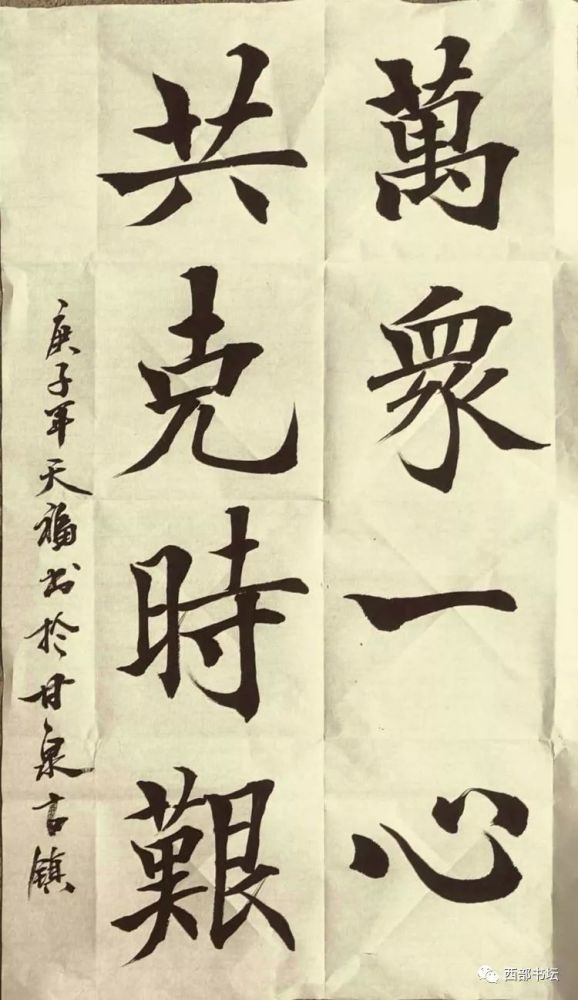 萬眾一心
共克時艱
庚子年天福书於甘泉古镇
西部书坛